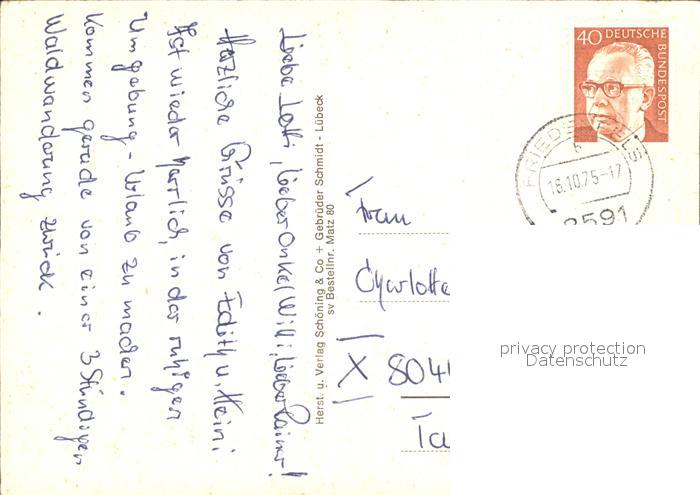 Liebe Lotti, lieber Onkel Willi, lieber Rainer!
Herzliche Grüsse von Edith u. Heini
Ist wieder herrlich, in der ruhigen
Umgebung - Urlaub zu machen.
Kommen gerade von einer 3 Stündigen
Waldwanderung zurück.
Herst. u. Verlag Schöning & Co + Gebrüder Schmidt - Lübeck
sv Bestellnr. Matz 80
40 DEUTSCHE
BUNDESPOST
FRIEDENFELS
b
16.10.75-17
8591
Frau
Charlotte
X 804
privacy protection
Datenschutz